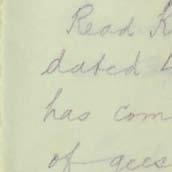 Read
dated
has com
of